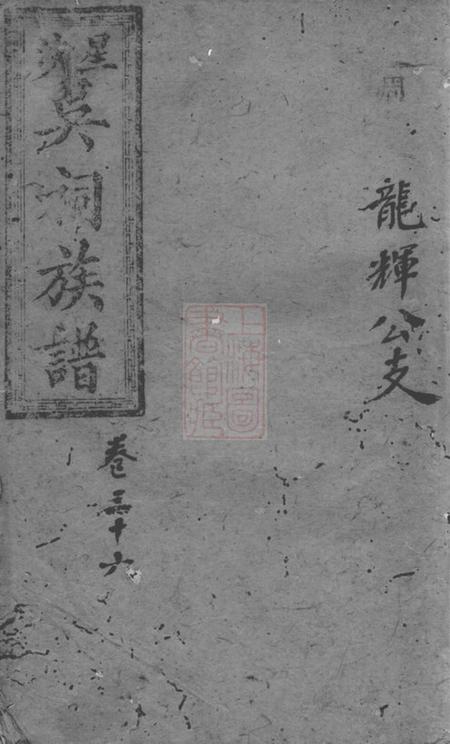 龍輝公支
上海圖
書館藏
星
吳祠族譜
卷三十六